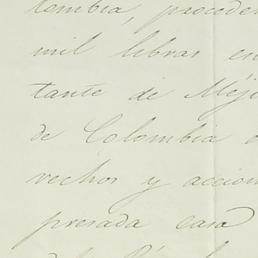 lombia, proceden
mil libras en
tante de Méji
de Colombia
vechos y accion
presada casa